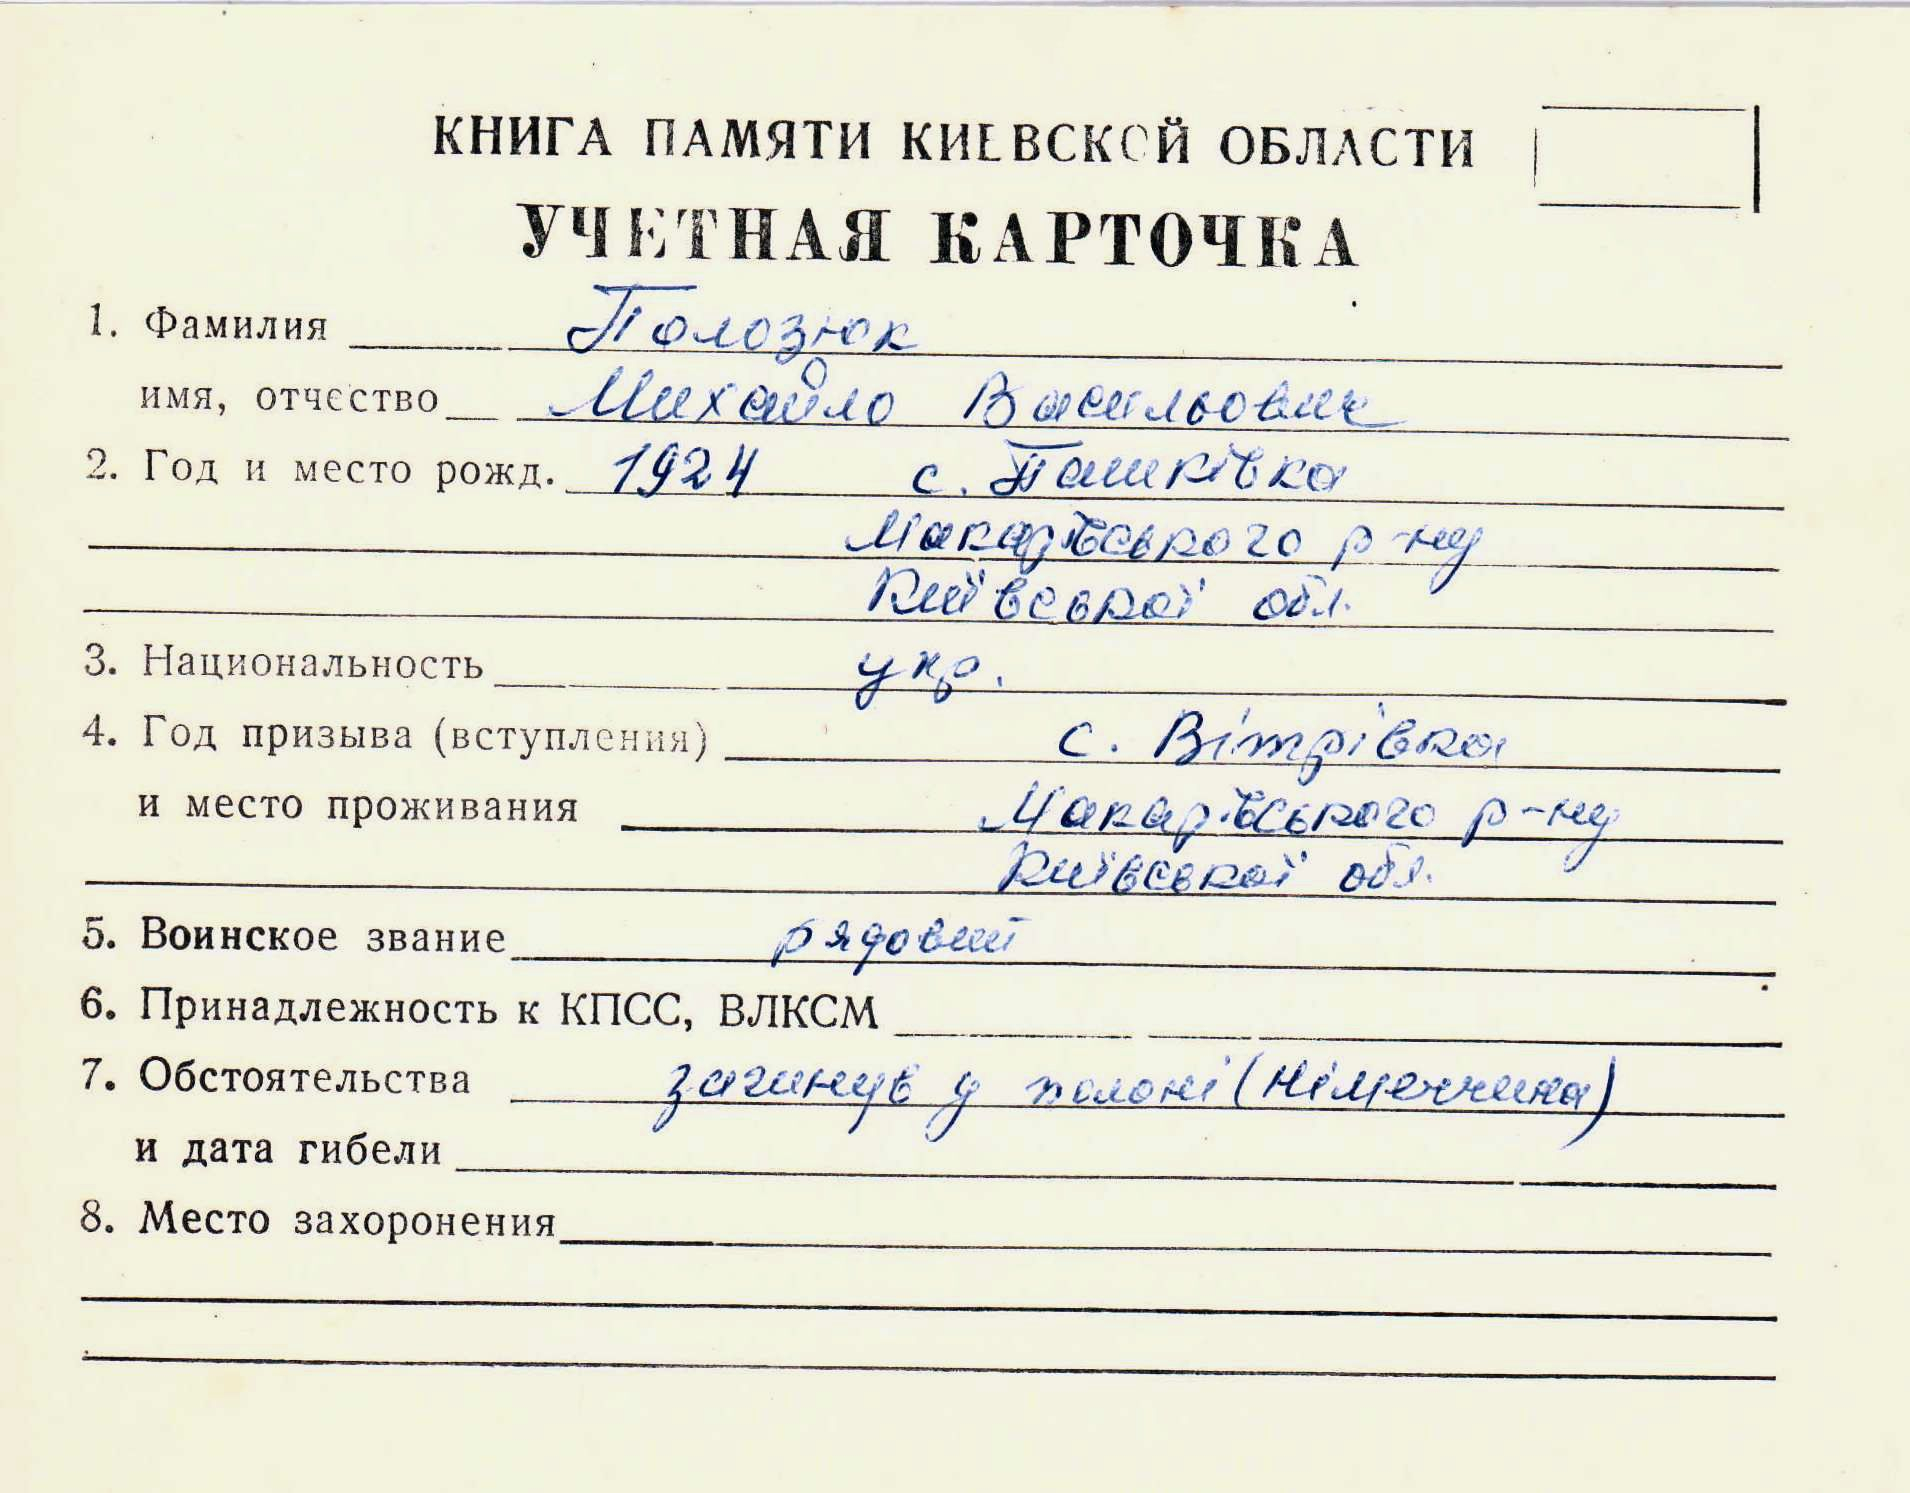 КНИГА ПАМЯТИ КИЕВСКОЙ ОБЛАСТИ
УЧЕТНАЯ КАРТОЧКА
1. Фамилия Полозюк
имя, отчество Михайло Васильович
2. Год и место рожд. 1924 с. Пашківка
Макарівського р-ну
Київської обл.
3. Национальность укр.
4. Год призыва (вступления) с. Вітрівка
и место проживания Макарівського р-ну
Київської обл.
5. Воинское звание рядовий
6. Принадлежность к КПСС, ВЛКСМ
7. Обстоятельства загинув у полоні (Німеччина)
и дата гибели
8. Место захоронения